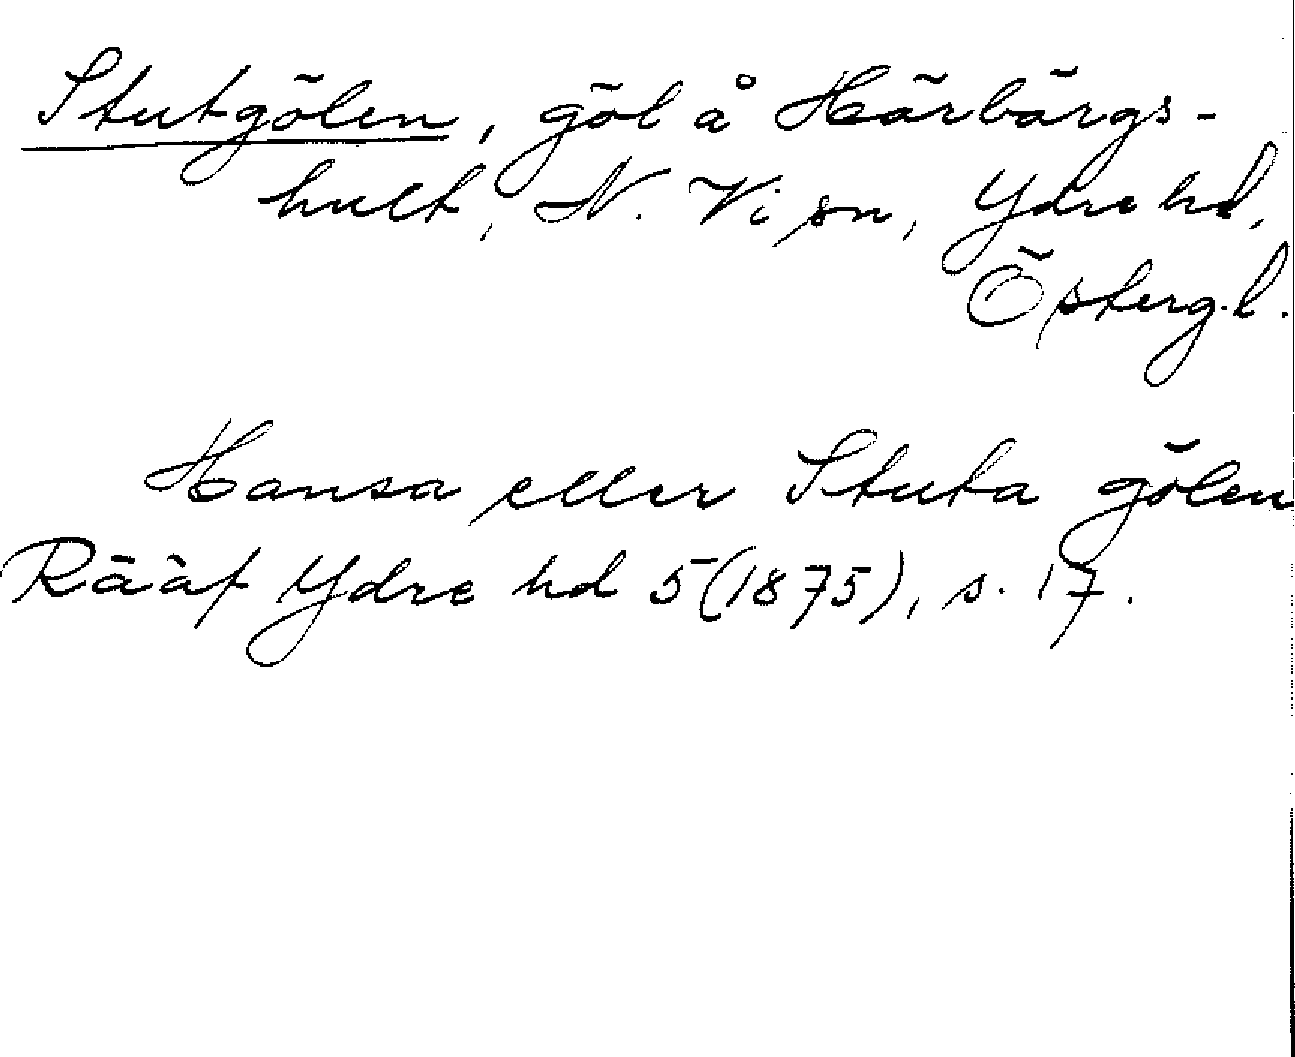 Stutgölen, göl å Härbärgs-
hult, N. Vi sn, Ydre hd,
Östergl.
Hansa eller Stuta gölen
Rääf Ydre hd 5 (1875), s. 17.